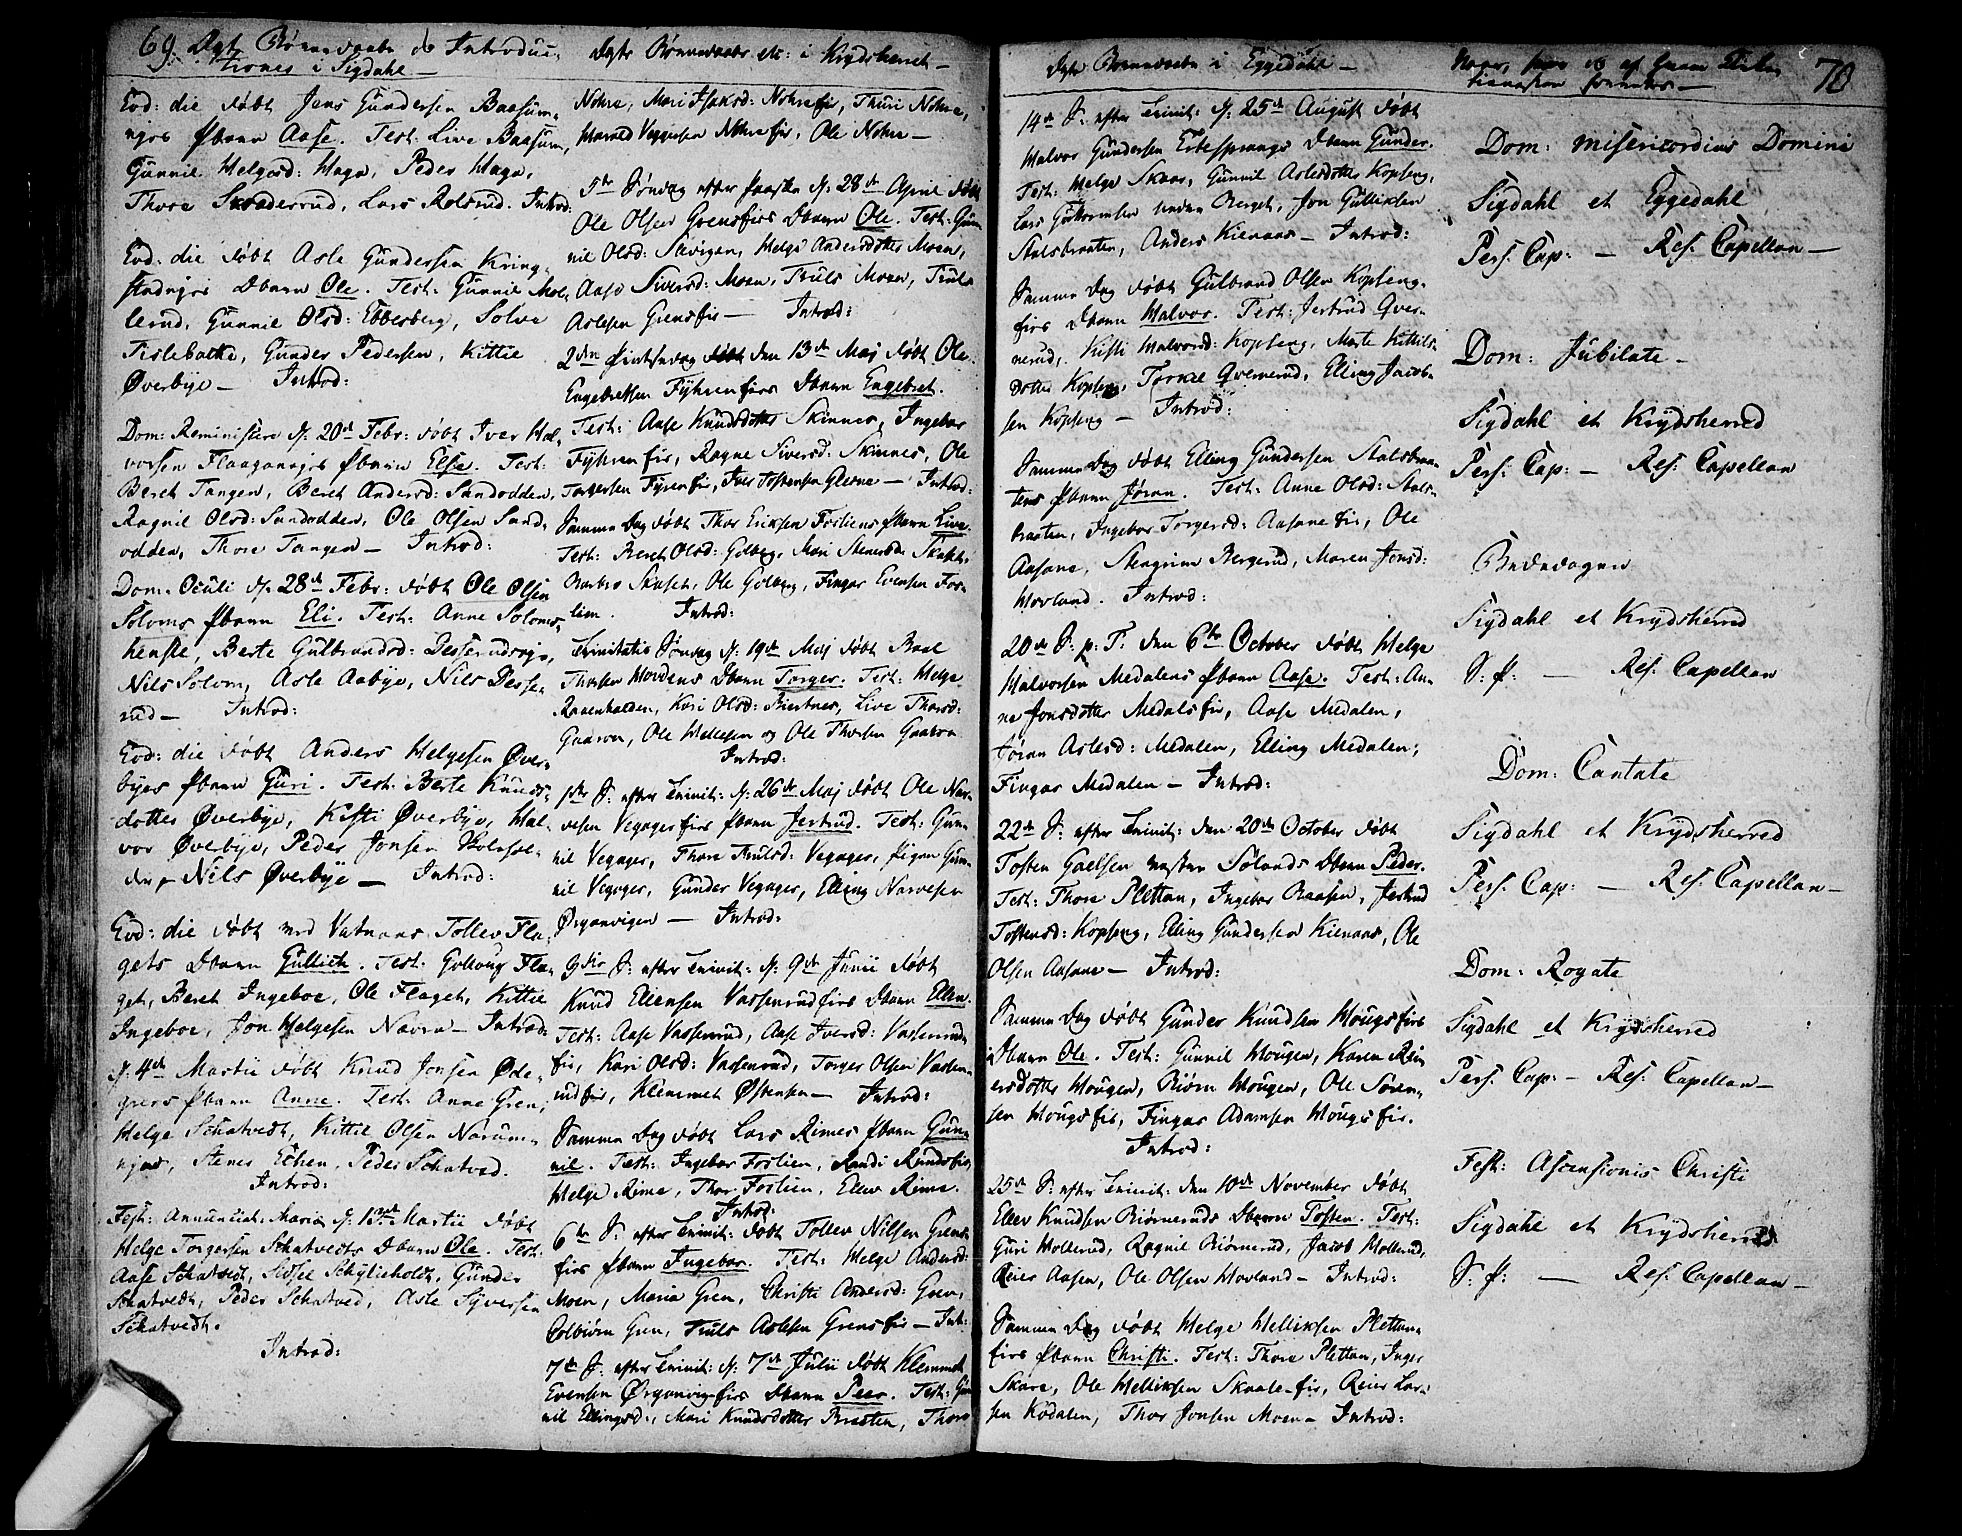 69. Ægte Børnedaabe og Introduc-
tiones i Sigdahl —
Eod: die døbt Jens Gundersen Baasum-
ngrs Pbarn Aase. Test: Live Baasum,
Gunnil Helgesd: Haga, Peder Haga,
Thore Skradderud, Lars Rolsrud. Introd:
Eod: die døbt Asle Gundersen Kring-
stadngrs Dbarn Ole. Test: Gunnil Mol-
lerud, Gunnil Olsd: Ebbesberg, Solve
Tislebakke, Gunder Pedersen, Kittil
Øverbye — Introd:
Dom: Reminiscere d: 20de Febr: døbt Iver Hal-
vorsen Flaaganegrs Pbarn Else. Test:
Beret Tangen, Beret Andersd: Sandodden,
Ragnil Olsd: Sandodden, Ole Olsen Sand-
odden, Thore Tangen — Introd:
Dom: Oculi d: 28de Febr: døbt Ole Olsen
Soloms Pbarn Eli. Test: Anne Solom-
henste, Berte Gulbrandsd:
Nils Solom, Asle Aabye, Nils Desse-
rud — Introd:
Eod: die døbt Anders Helgesen Øver-
byes Pbarn Guri. Test: Berte Knuds-
dotter Øverbye, Kisti Øverbye, Hal-
vor Øverbye, Peder Jonsen
Nils Øverbye — Introd:
Eod: die døbt ved Vatnaas Tollev Fla-
gets Dbarn Gullich. Test: Gollaug Fla-
get, Beret Ingeboe, Ole Flaget, Kittil
Ingeboe, Jon Helgesen Navra — Introd:
d: 4de Martii døbt Knud Jonsen Øde-
grens Pbarn Anne. Test: Anne Gren,
Helge Schatvedt, Kittil Olsen Narum-
njao, Stener Echen, Peder Schatved.
Introd:
Fest: Annunciat: Mariæ d: 13de Martii døbt
Helge Torgersen Schatvedts Dbarn Ole. Test:
Aase Schatvedt, Sidsel Schylieholdt, Gunder
Schatvedt, Peder Schatved, Asle Syversen
Schatvedt.
Introd:
Ægte Børnedaabe etc: i Krydsherret —
Nohre, Mari Isaksd: Nohrefir, Thuri Nohre,
Harald Veggesen Nohrefir, Ole Nohre —
5te Søndag efter Paaske d: 28de April døbt
Ole Olsen Grensfirs Dbarn Ole. Test: Gun-
nil Olsd: Skrigen, Helge Andersdotter Moen,
Aase Siversd: Moen, Truls Moen, Truls
Aslesen Grensfir — Introd:
2den Pintsedag døbt den 13de Maj døbt Ole
Engebretsen Fyhrenfirs Dbarn Engebret.
Test: Aase Knudsdotter Skinnes, Ingebor
Fyhrenfir, Ragne Siversd: Skinnes, Ole
Torgersen Fyrenfir, Iver Tostensen Glesne — Introd:
Samme Dag døbt Thor Eriksen Forliens Pbarn Live.
Test: Beret Olsd: Golberg, Mari Stenersd: Skaset,
Barbro Skaset, Ole Golberg, Fingar Evensen For-
lien. Introd:
Trinitatis Søndag d: 19de Maj døbt Baal
Thorsen Hovdens Dbarn Torger. Test: Helge
Ravenhalden, Kari Olsd: Biertnes, Live Thorsd:
Gaaron, Ole Hellesen og Ole Thorsen Gaaron
Introd:
1ste S: efter Trinit: d: 26de Maj døbt Ole Nar-
vesen Vegagerfirs Pbarn Jertrud. Test: Gun-
nil Vegager, Thore Trulsd: Vegager, Pigen Gun-
nil Vegager, Gunder Vegager, Elling Narvesen
Ørganvigen — Introd:
2den S: efter Trinit: d: 9de Junii døbt
Knud Ellensen Vassenrudfirs Dbarn Ellen.
Test: Aase Vassenrud, Aase Iversd: Vassenrud-
fir, Kari Olsd: Vassenrud, Torger Olsen Vassen-
rudfir, Klemmet Østensen — Introd:
Samme Dag døbt Lars Rimes Pbarn Gun-
nil. Test: Ingebor Forlien, Randi Rundsfir,
Helge Rime, Thor Forlien, Ellev Rime.
Introd:
6te S: efter Trinit: døbt Tollev Nilsen Grens-
firs Pbarn Ingebor. Test: Helge Andersd:
Moen, Maria Gren, Christi Andersd: Gren,
Colbiørn Gren, Truls Aslesen Grensfir — Int:
7de S: efter Trinit: d: 7de Julii døbt Klemmet
Evensen Ørganvigfirs Dbarn Peer. Test: Gun-
nil Ellingsd:, Mari Knudsdotter Braaten, Thore
Ægte Børnedaabe i Eggedahl —
14de S: efter Trinit: d: 25de August døbt
Halvor Gundersen Erbesprangs Dbarn Gunder.
Test: Helge Skaar, Gunnil Aslesdotter Kopseng,
Lars Guthormsen neden Berget, Jon Gulliksen
Stalsbraaten, Anders Kienaas — Introd:
Samme Dag døbt Gulbrand Olsen Kopseng-
firs Dbarn Halvor. Test: Jertrud Qver-
nerud, Kisti Halvorsd: Kopseng, Marte Kittils-
dotter Kopseng, Torkel Qvernerud, Elling Jacob-
sen Kopseng — Introd:
Samme Dag døbt Elling Gundersen Stalsbraa-
tens Pbarn Jøran. Test: Anne Olsd: Stals-
braaten, Ingebor Torgersd: Aasanefir, Ole
Aasane, Stengrim Bergerud, Maren Jonsd:
Hovland. Introd:
20de S: p: T: den 6te October døbt Helge
Halvorsen Medalens Pbarn Aase. Test: An-
ne Jonsdotter Medalsfir, Aase Medalen,
Jøran Aslesd: Medalen, Elling Medalen,
Fingar Medalen — Introd:
22de S: efter Trinit: den 20de October døbt
Tosten Gaelsen nesten Solands Dbarn Peder.
Test: Thore Plettan, Ingebor Raasen, Jertrud
Tostensd: Kopseng, Elling Gundersen Kienaas, Ole
Olsen Aasane — Introd:
Samme Dag døbt Gunder Knudsen Hougsfirs
Dbarn Ole. Test: Gunnil Hougen, Karen Rei-
ersdotter Hougen, Biørn Hougen, Ole Soren-
sen Hougsfir, Fingar Adamsen Hougsfir.
Introd:
25de S: efter Trinit: den 10de November døbt
Ellev Knudsen Biørneruds Dbarn Tosten. Test:
Guri Hollerud, Ragnil Biørnerud, Jacob Hollerud,
Reier Aasen, Ole Olsen Hovland — Introd:
Samme Dag døbt Helge Helliksen Plettan-
firs Pbarn Christi. Test: Thore Plettan, Inger
Skare, Ole Helliksen Skaale-fir, Reier Lar-
sen Kødalen, Thor Jonsen Moen — Introd:
Naar, hvor og af hvem Tieneste-
tienesten forrettes —
70
Dom: Misericordius Domini
Sigdahl et Eggedahl
Pers: Cap: — Res: Capellan —
Dom: Jubilate —
Sigdahl et Krydsherred
Pers: Cap: — Res: Capellan
Bededagen
Sigdahl et Krydsherred
S: P: — Res: Capellan
Dom: Cantate
Sigdahl et Krydsherred
Pers: Cap: — Res: Capellan —
Dom: Rogate
Sigdahl et Krydsherred
Pers: Cap: — Res: Capellan —
Fest: Ascensionis Christi
Sigdahl et Krydsherred
S: P: — Res: Capellan —